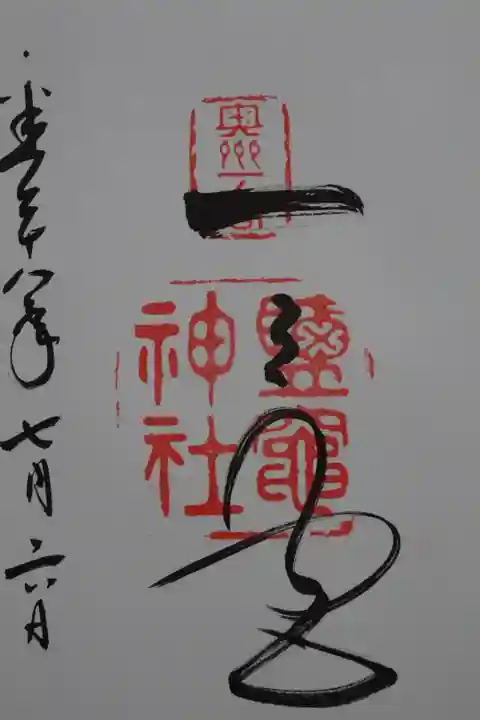 奥州一宮
鹽竈
神社
一之宮
年七月六日